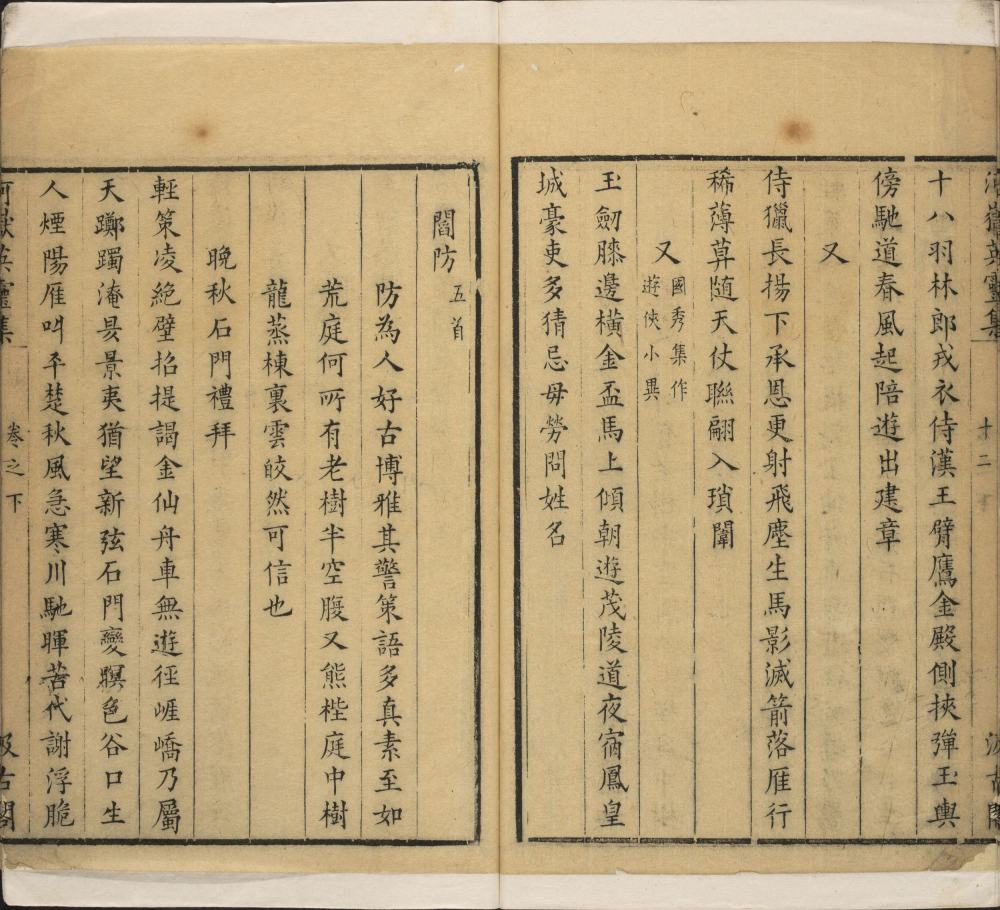 河嶽英靈集 十二 汲古閣
十八羽林郎戎衣侍漢王臂鷹金殿側挾彈玉輿
傍馳道春風起陪遊出建章
又
侍獵長揚下承恩更射飛塵生馬影滅箭落雁行
稀薄草隨天仗聯翩入瑣闈
又
國秀集作
遊俠小異
玉劒膝邊橫金盃馬上傾朝遊茂陵道夜宿鳳皇
城豪吏多猜忌毋勞問姓名
閻防 五首
防為人好古博雅其警策語多真素至如
荒庭何所有老樹半空腹又熊梐庭中樹
龍蒸棟裏雲皎然可信也
晚秋石門禮拜
輕策凌絕壁招提謁金仙舟車無遊徑崕嶠乃屬
天躑躅淹昃景夷猶望新弦石門變暝色谷口生
人煙陽雁叫平楚秋風急寒川馳暉苦代謝浮脆
河嶽英靈集 卷之下 汲古閣